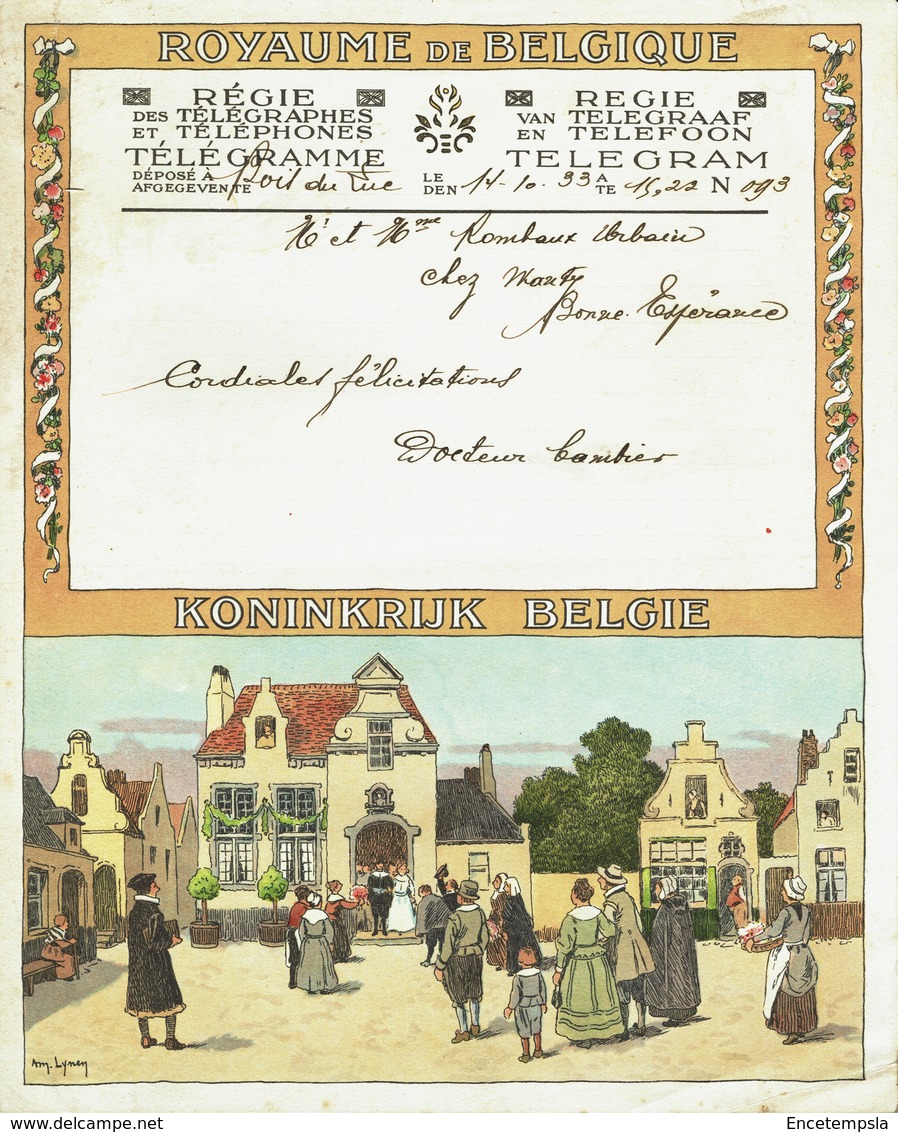 ROYAUME DE BELGIQUE
RÉGIE
DES TÉLÉGRAPHES
ET TÉLÉPHONES
TÉLÉGRAMME
REGIE
VAN TELEGRAAF
EN TELEFOON
TELEGRAM
DÉPOSÉ À
AFGEGEVEN TE
Bois du Luc
LE
DEN
14-10-33
A
TE
15,22 N 093
Mr et Mme Rombaux Urbain
chez Wauty
Bonne-Espérance
Cordiales félicitations
Docteur Cambier
KONINKRIJK BELGIE
Am. Lynen
Encetempsla